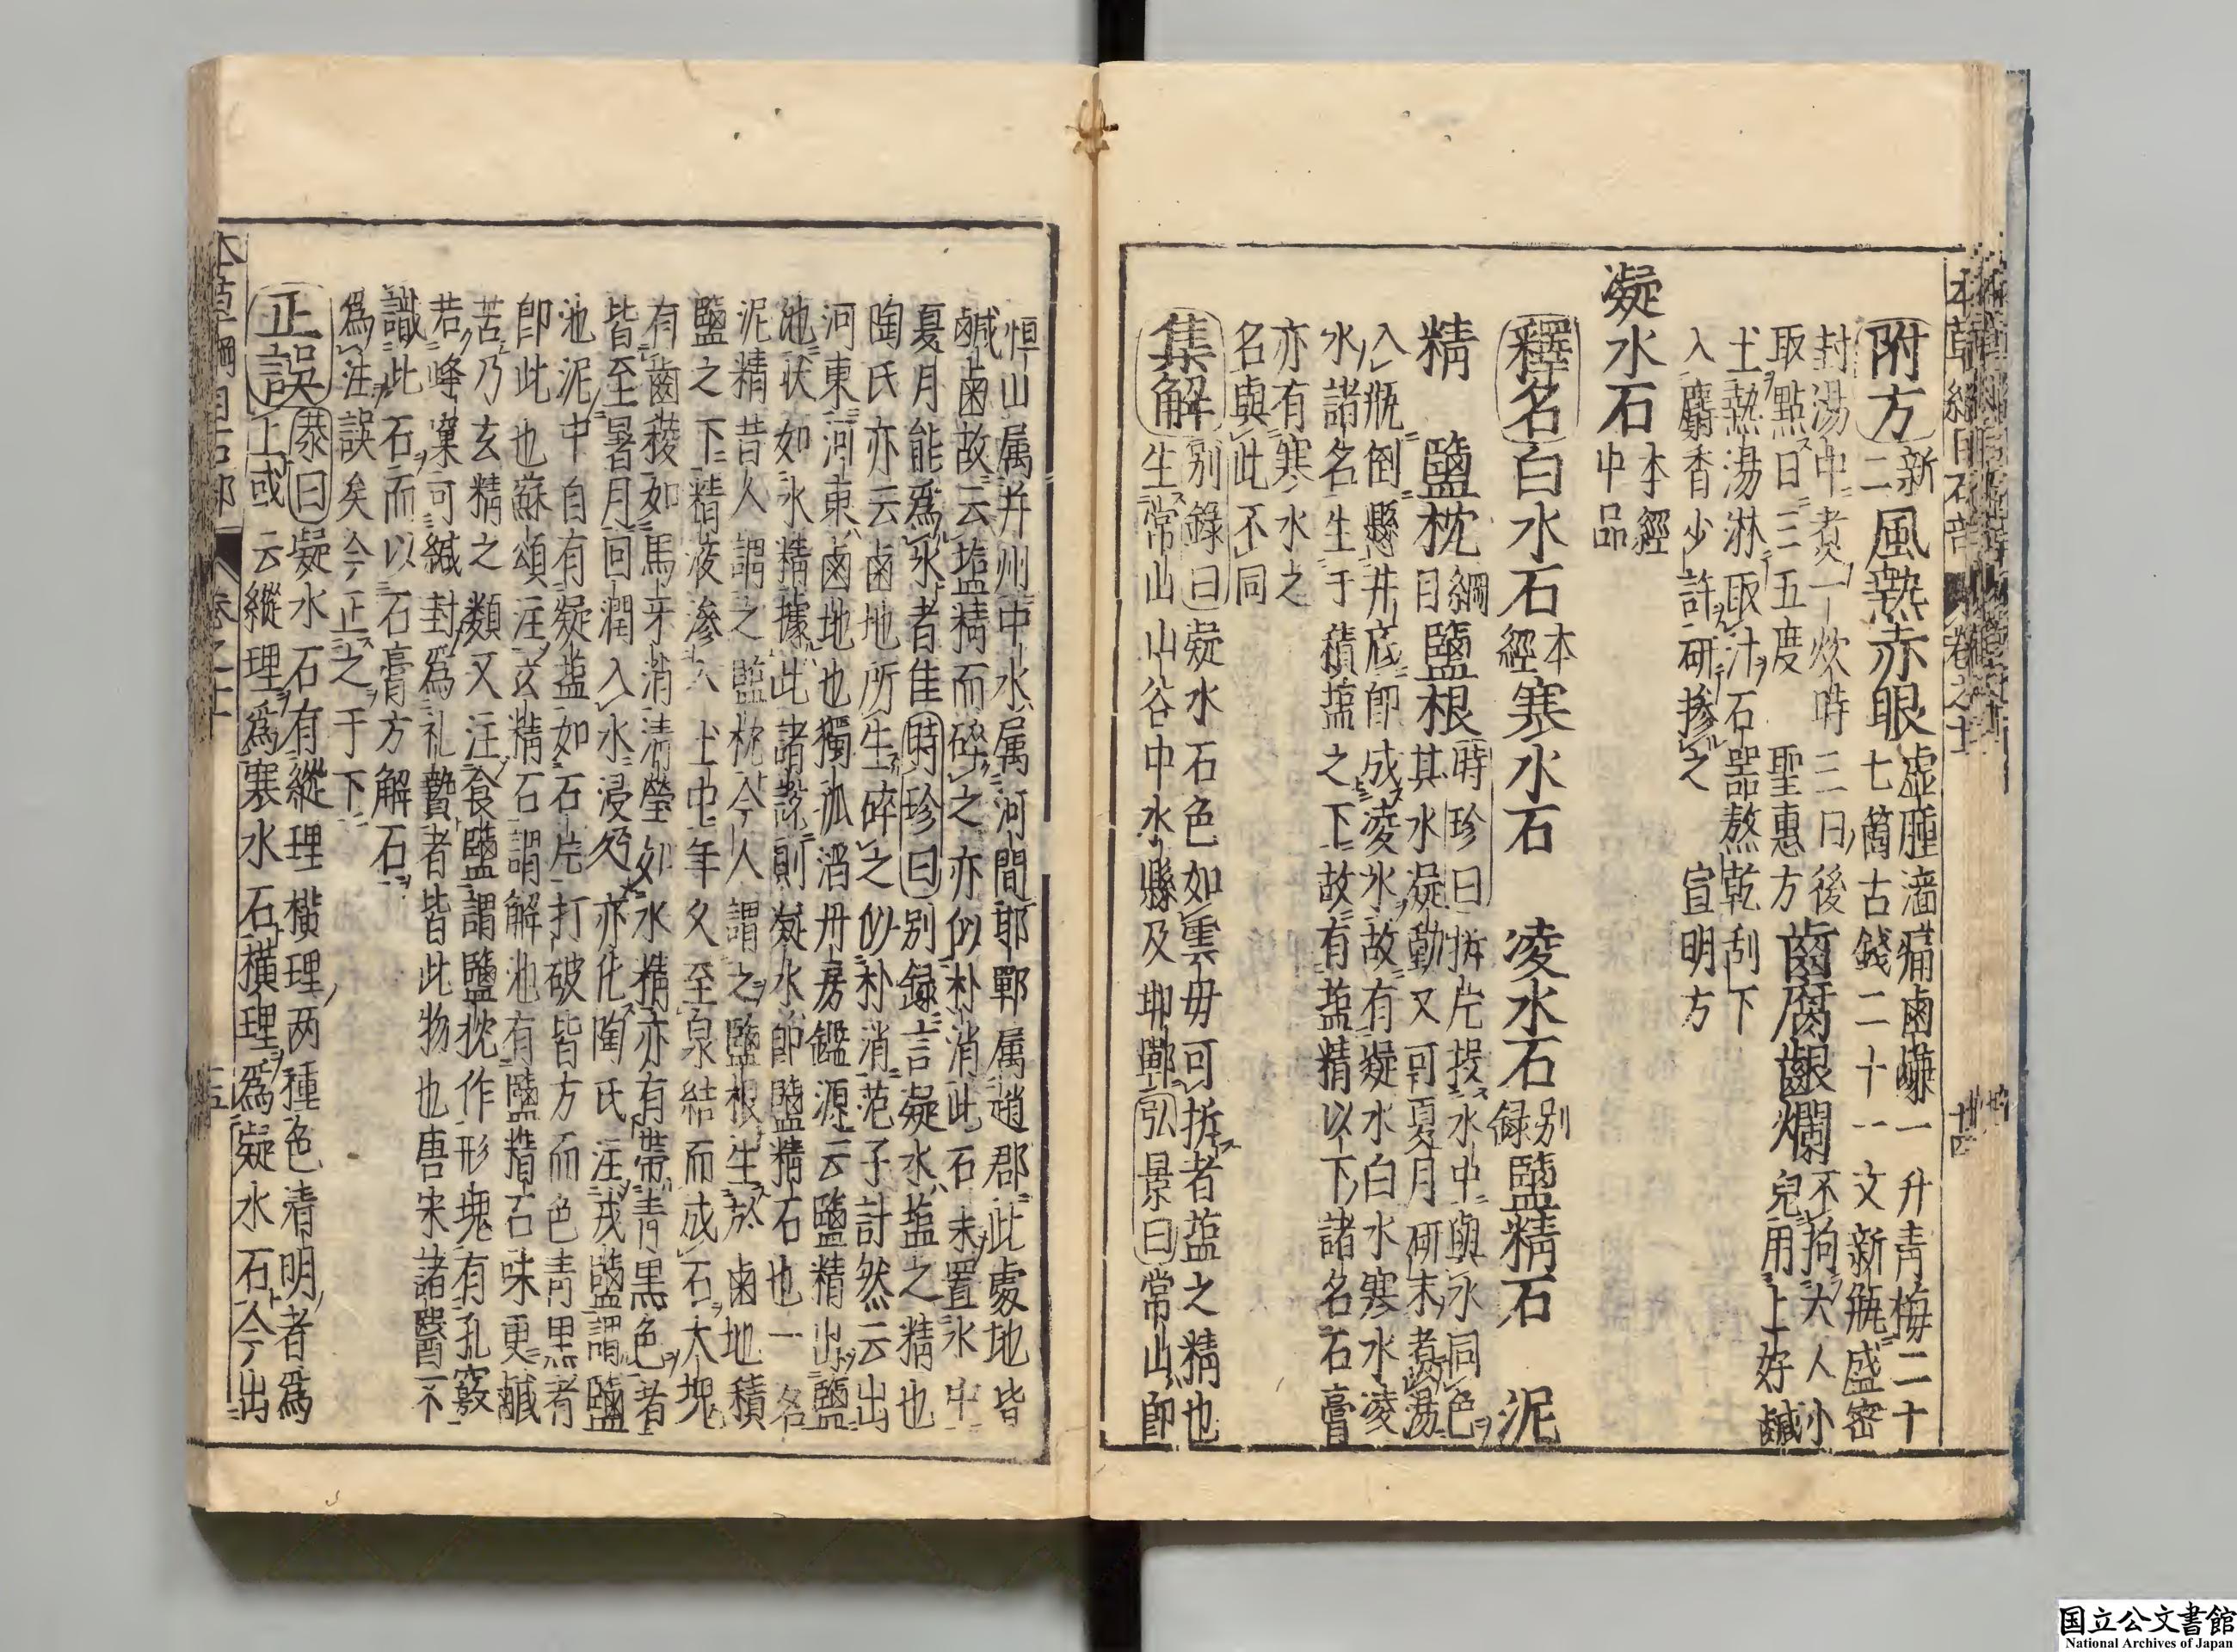 本草綱目石部 卷之十一 十四
附方 新二 風熱赤眼 虛腫澀痛鹵鹻一升青梅二十
七箇古錢二十一文新瓶盛密
封湯中煮一炊時三日後
取點日三五度 聖惠方 齒腐齦爛 不拘大人小
兒用上好鹹
土熱湯淋取汁石器熬乾刮下
入麝香少許研摻之 宣明方
凝水石 本經中品
釋名 白水石 本經 寒水石 凌水石 別録 鹽精石 泥
精 鹽枕 綱目 鹽根 時珍曰拆片投水中與水同色
其水凝動又可夏月研末煮湯
入瓶倒懸井底即成凌氷故有凝水白水寒水凌
水諸名生于積塩之下故有塩精以下諸名石膏
亦有寒水之
名與此不同
集解 別錄曰凝水石色如雲母可拆者塩之精也
生常山山谷中水縣及邯鄲弘景曰常山即
恒山属并州中水属河間邯鄲属趙郡此處地皆
鹹鹵故云塩精而碎之亦似朴消此石末置水中
夏月能爲氷者佳時珍曰別録言凝水塩之精也
陶氏亦云鹵地所生碎之似朴消范子計然云出
河東河東鹵地也獨孤滔丹房鑑源云鹽精出鹽
池狀如水精據此諸說則凝水即鹽精石也一名
泥精昔人謂之鹽枕今人謂之鹽根生於鹵地積
鹽之下精液滲入土中年久至泉結而成石大塊
有齒稜如馬牙消清瑩如水精亦有帶青黒色者
皆至暑月回潤入水浸久亦化陶氏注戎鹽謂鹽
池泥中自有凝塩如石片打破皆方而色青黒者
即此也蘇頌注玄精石謂解池有鹽精石味更鹹
苦乃玄精之類又注食鹽謂鹽枕作形塊有孔竅
若蜂窠可緘封爲礼贄者皆此物也唐宋諸醫不
識此石而以石膏方解石
爲注誤矣今正之于下
正誤 恭曰凝水石有縱理橫理両種色清明者爲
上或云縱理爲寒水石橫理爲凝水石今出
本草綱目石部 卷之十一 十五
国立公文書館
National Archives of Japan